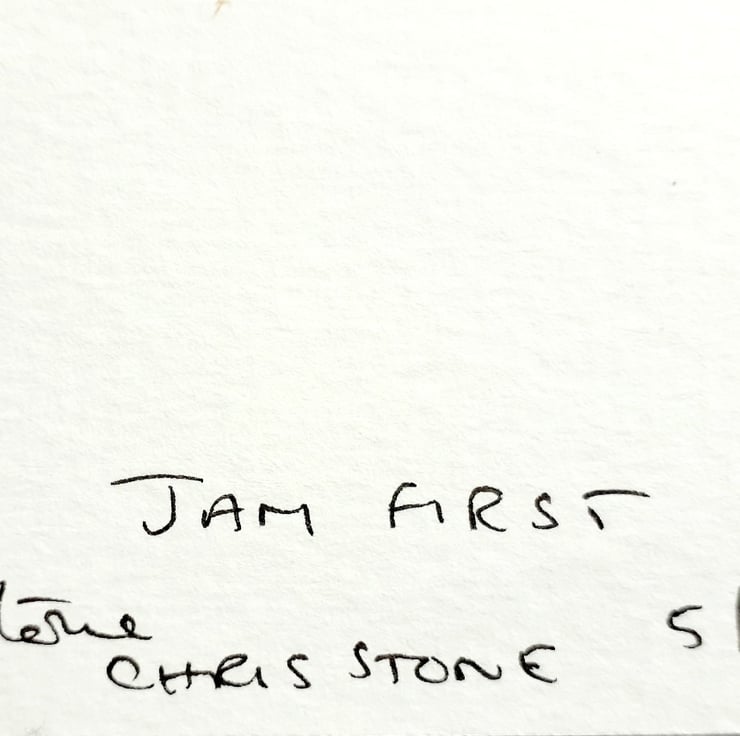 JAM FIRST
CHRIS STONE